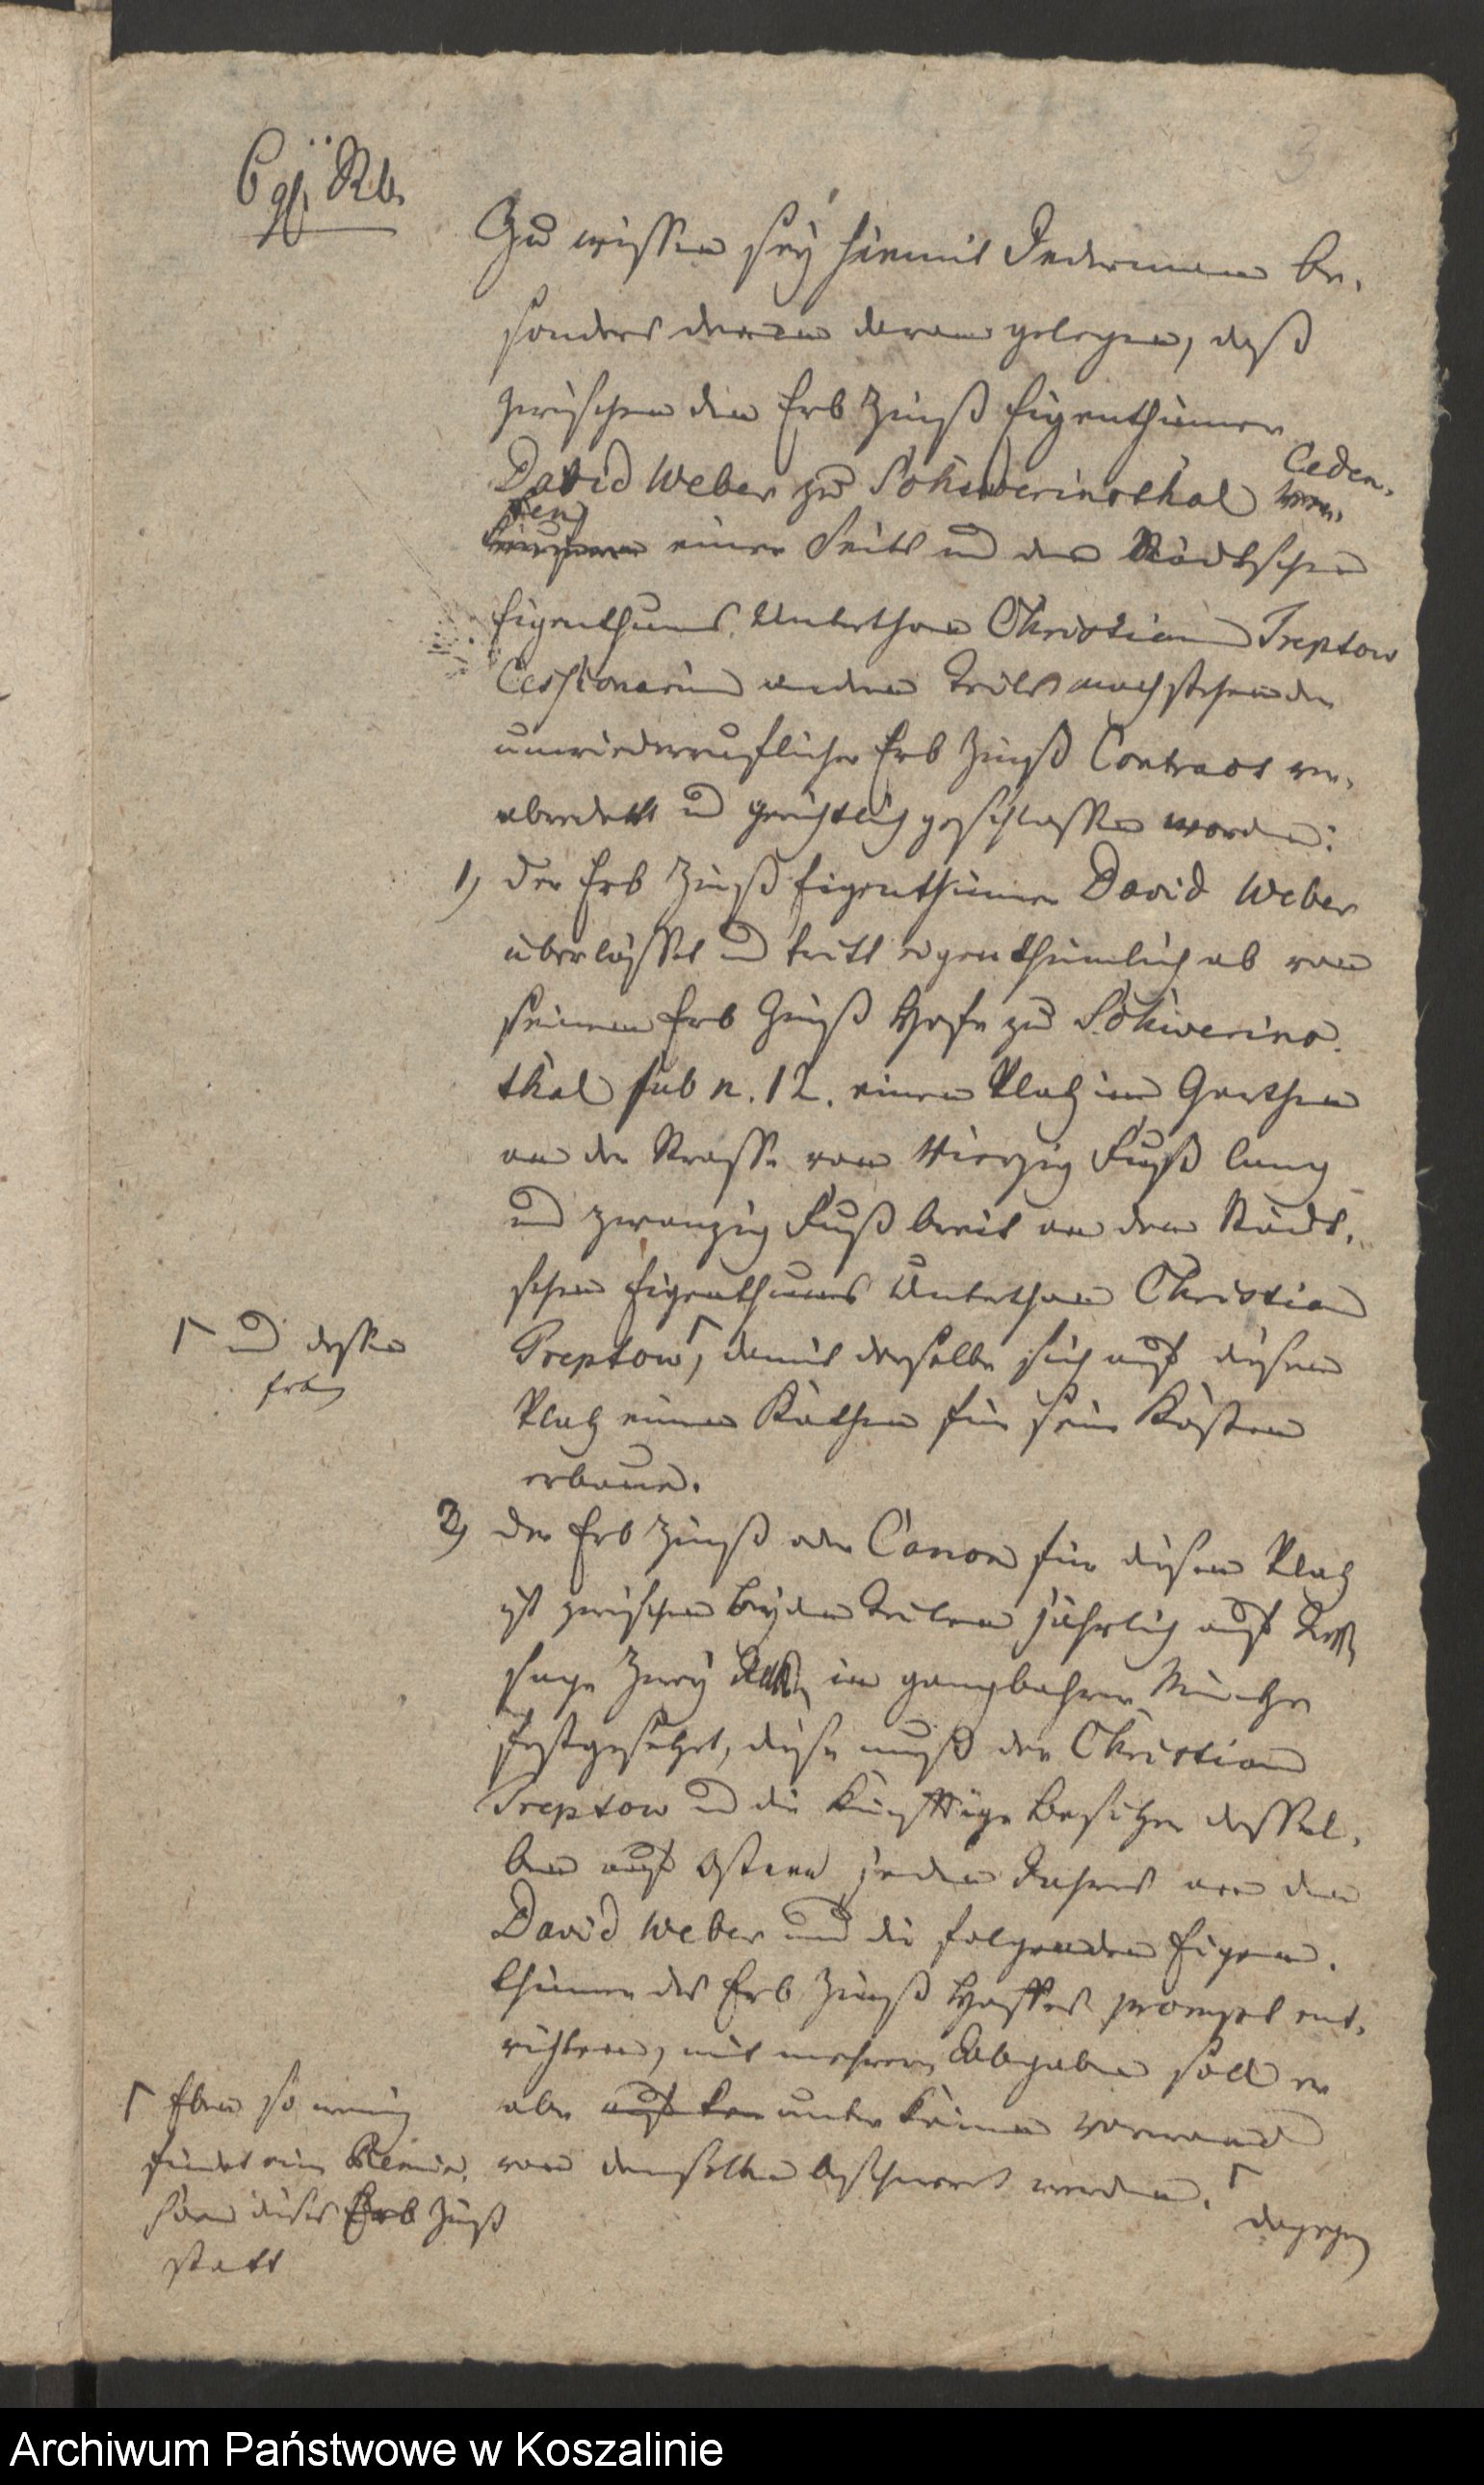 3
6 gl.
Zu wissen sey hiemit Jedermann be-
sonders denen daran gelegen, daß
zwischen den Erb Zinß Eigenthümer
David Weber zu Schwerinsthal Ceden-
ten einer Seits und den Städtschen
Eigenthums Unterthan Christian Treptow
Cessionarium andern Teils nachstehender
unwiederruflicher Erb Zinß Contract ver-
abredet und gerichtlich geschlossen worden:
1) der Erb Zinß Eigenthümer David Weber
überläßet und tritt eigenthümlich ab von
seinem Erb Zinß Hofe zu Schwerins-
thal sub n. 12. einen Platz im Garthen
an der Strasse von Vierzig Fuß lang
und zwanzig Fuß breit an den Städt-
schen Eigenthums Unterthan Christian
Γ und dessen
Erben
Treptow Γ, damit derselbe sich auf diesen
Platz einen Kathen für sein Kosten
erbaue.
2) der Erb Zinß oder Canon für diesen Platz
ist zwischen beyden Teilen jährlich auf
sage Zwey in gangbahrer Müntze
festgesetzet, diese muß der Christian
Treptow und die künfftige Besitzer dessel-
ben auf Ostern jeden Jahres an den
David Weber und die folgenden Eigen-
thümer des Erb Zinß Hoffes prompt ent-
richten, mit mehrern Abgaben soll er
aber auf kei unter keinen Vorwand
von demselben beschwert werden. Γ
Γ Eben so wenig
findet eine Remis-
sion dieses Erb Zinß
statt
dagegen
Archiwum Państwowe w Koszalinie